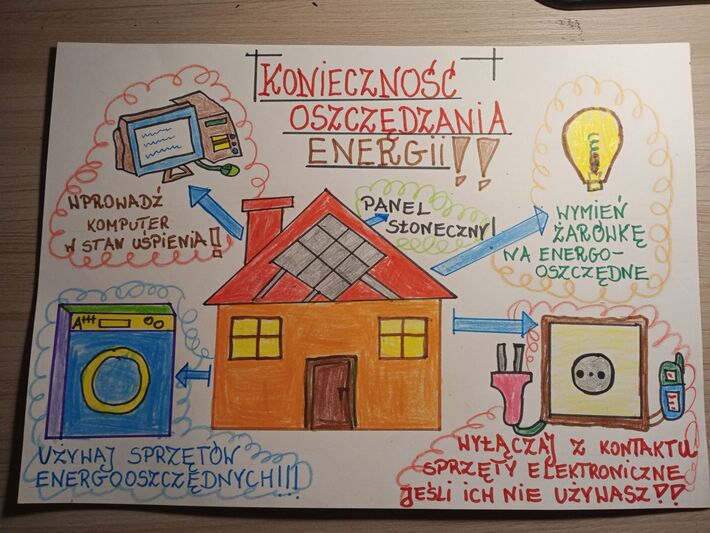 KONIECZNOŚĆ
OSZCZĘDZANIA
ENERGII!!
WPROWADŹ
KOMPUTER
W STAN UŚPIENIA!
PANEL
SŁONECZNY!
WYMIEŃ
ŻARÓWKĘ
NA ENERGO-
OSZCZĘDNE
A+++
UŻYWAJ SPRZĘTÓW
ENERGOOSZCZĘDNYCH!!!
WYŁĄCZAJ Z KONTAKTU
SPRZĘTY ELEKTRONICZNE
JEŚLI ICH NIE UŻYWASZ!!